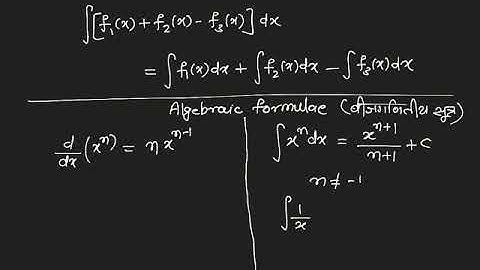 ∫[f₁(x) + f₂(x) - f₃(x)] dx
= ∫f₁(x)dx + ∫f₂(x)dx - ∫f₃(x)dx
Algebraic formulae (बीजगणितीय सूत्र)
d/dx (xⁿ) = n xⁿ⁻¹
∫xⁿdx = xⁿ⁺¹/n+1 + C
n ≠ -1
∫1/x